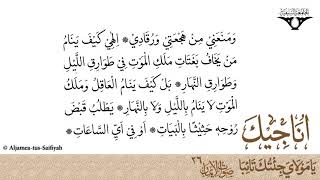 وَمَنَعَنِي مِنْ هَجْعَتِي وَرُقَادِي* اِلٰهِيْ كَيْفَ يَنَامُ
مَنْ يَخَافُ بَغَتَاتِ مَلَكِ الْمَوْتِ فِي طَوَارِقِ اللَّيْلِ
وَطَوَارِقِ النَّهَارِ* بَلْ كَيْفَ يَنَامُ الْعَاقِلُ وَمَلَكُ
الْمَوْتِ لَا يَنَامُ بِاللَّيْلِ وَلَا بِالنَّهَارِ* يَطْلُبُ قَبْضَ
رُوْحِهِ حَثِيْثًا بِالْبَيَاتِ* اَوْ فِيْ اَيِّ السَّاعَاتِ*
اُنَاجِيْكَ
يَا مَوْلَايَ جِئْتُكَ تَائِبًا
٢٦
© Aljamea-tus-Saifiyah